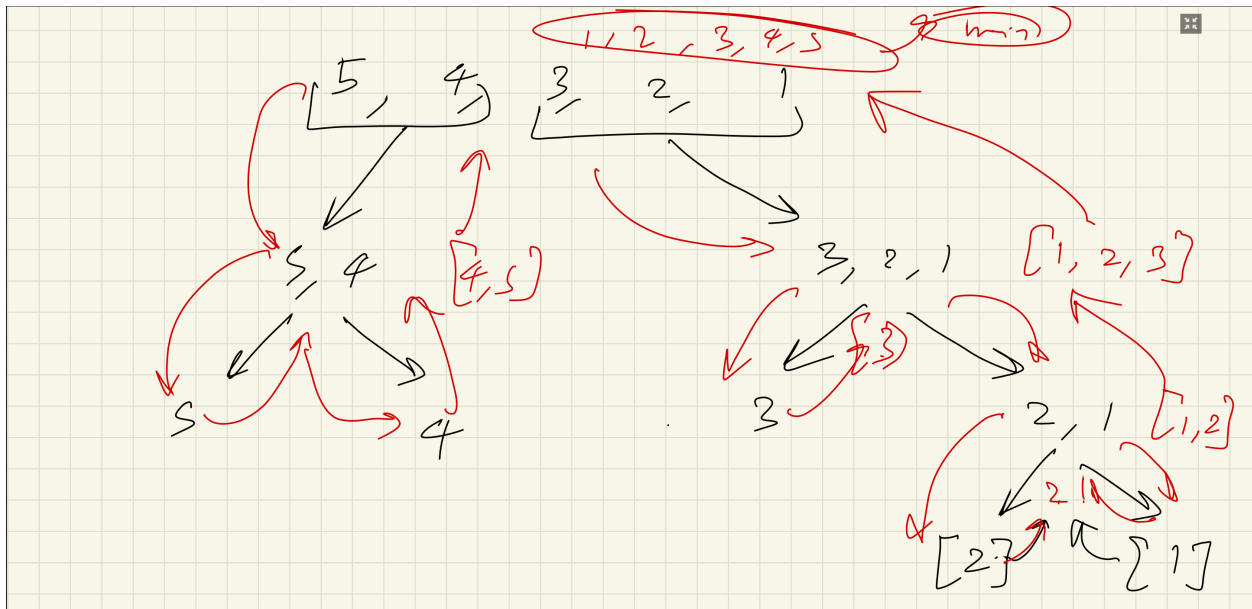 1, 2, 3, 4, 5
5, 4, 3, 2, 1
5, 4 [4, 5] 3, 2, 1 [1, 2, 3]
[3]
5 4 3 2, 1 [1, 2]
2 1
[2] [1]